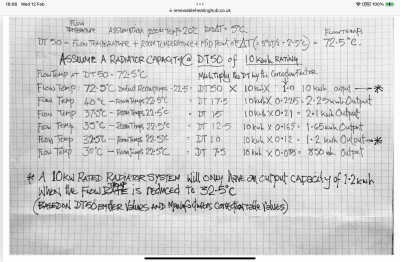 18:06 Wed 12 Feb
renewableheatinghub.co.uk
100%
FLOW TEMPERATURE ASSUMPTION ROOM TEMP = 20°C RAD ΔT = 5°C.
DT 50 - FLOW TEMPERATURE + ROOM TEMPERATURE + MID POINT OF ΔT (= 5°C/2 = 2.5°C) = FLOW TEMP: 72.5°C.
ASSUME A RADIATOR CAPACITY @ DT50 OF 10 kwh RATING
FLOW TEMP AT DT50 = 72.5°C Multiply the DT by the Correction FACTOR
FLOW TEMP: 72.5°C Room temps 22.5 = DT50 X 10kwh X 1.0 10 kwh output *
FLOW TEMP 40°C - Room temps 22.5°C = DT 17.5 10kwh X 0.225 = 2.25 kwh Output
FLOW TEMP 37.5°C - Room temps 22.5°C = DT 15 10kwh X 0.21 = 2.1 kwh Output
FLOW TEMP 35°C - Room temps 22.5°C = DT 12.5 10 kwh X 0.165 = 1.65 kwh Output
FLOW TEMP 32.5°C - Room temps 22.5°C = DT 10 10 kwh X 0.12 = 1.2 kwh Output *
FLOW TEMP 30°C - Room temps 22.5°C = DT 7.5 10 kwh X 0.085 = 850 wh Output
* A 10KW RATED RADIATOR SYSTEM WILL ONLY HAVE AN OUTPUT CAPACITY OF 1.2 kwh
WHEN THE FLOW TEMP IS REDUCED TO 32.5°C
(BASED ON DT50 EMITTER VALUES AND MANUFACTURERS CORRECTION TABLE VALUES)